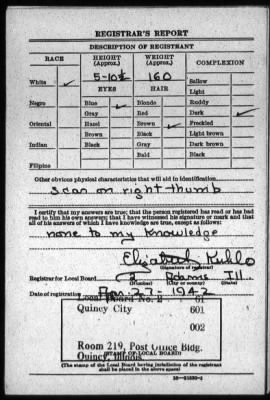 REGISTRAR'S REPORT
DESCRIPTION OF REGISTRANT
RACE HEIGHT (Approx.) WEIGHT (Approx.) COMPLEXION
White ✓ 5-10½ 160 Sallow
EYES HAIR Light
Negro Blue ✓ Blonde Ruddy
Gray Red Dark ✓
Oriental Hazel Brown ✓ Freckled
Brown Black Light brown
Indian Black Gray Dark brown
Bald Black
Filipino
Other obvious physical characteristics that will aid in identification
scar on right thumb
I certify that my answers are true; that the person registered has read or has had
read to him his own answers; that I have witnessed his signature or mark and that
all of his answers of which I have knowledge are true, except as follows:
none to my knowledge
Elizabeth
(Signature of registrar)
Registrar for Local Board 2 Adams Ill.
(Number) (City or county) (State)
Date of registration Apr. 27 - 1942
Local Board No. 2 61
Quincy City 601
002
Room 219, Post Office Bldg.
Quincy, Illinois
(STAMP OF LOCAL BOARD)
(The stamp of the Local Board having jurisdiction of the registrant
shall be placed in the above space)